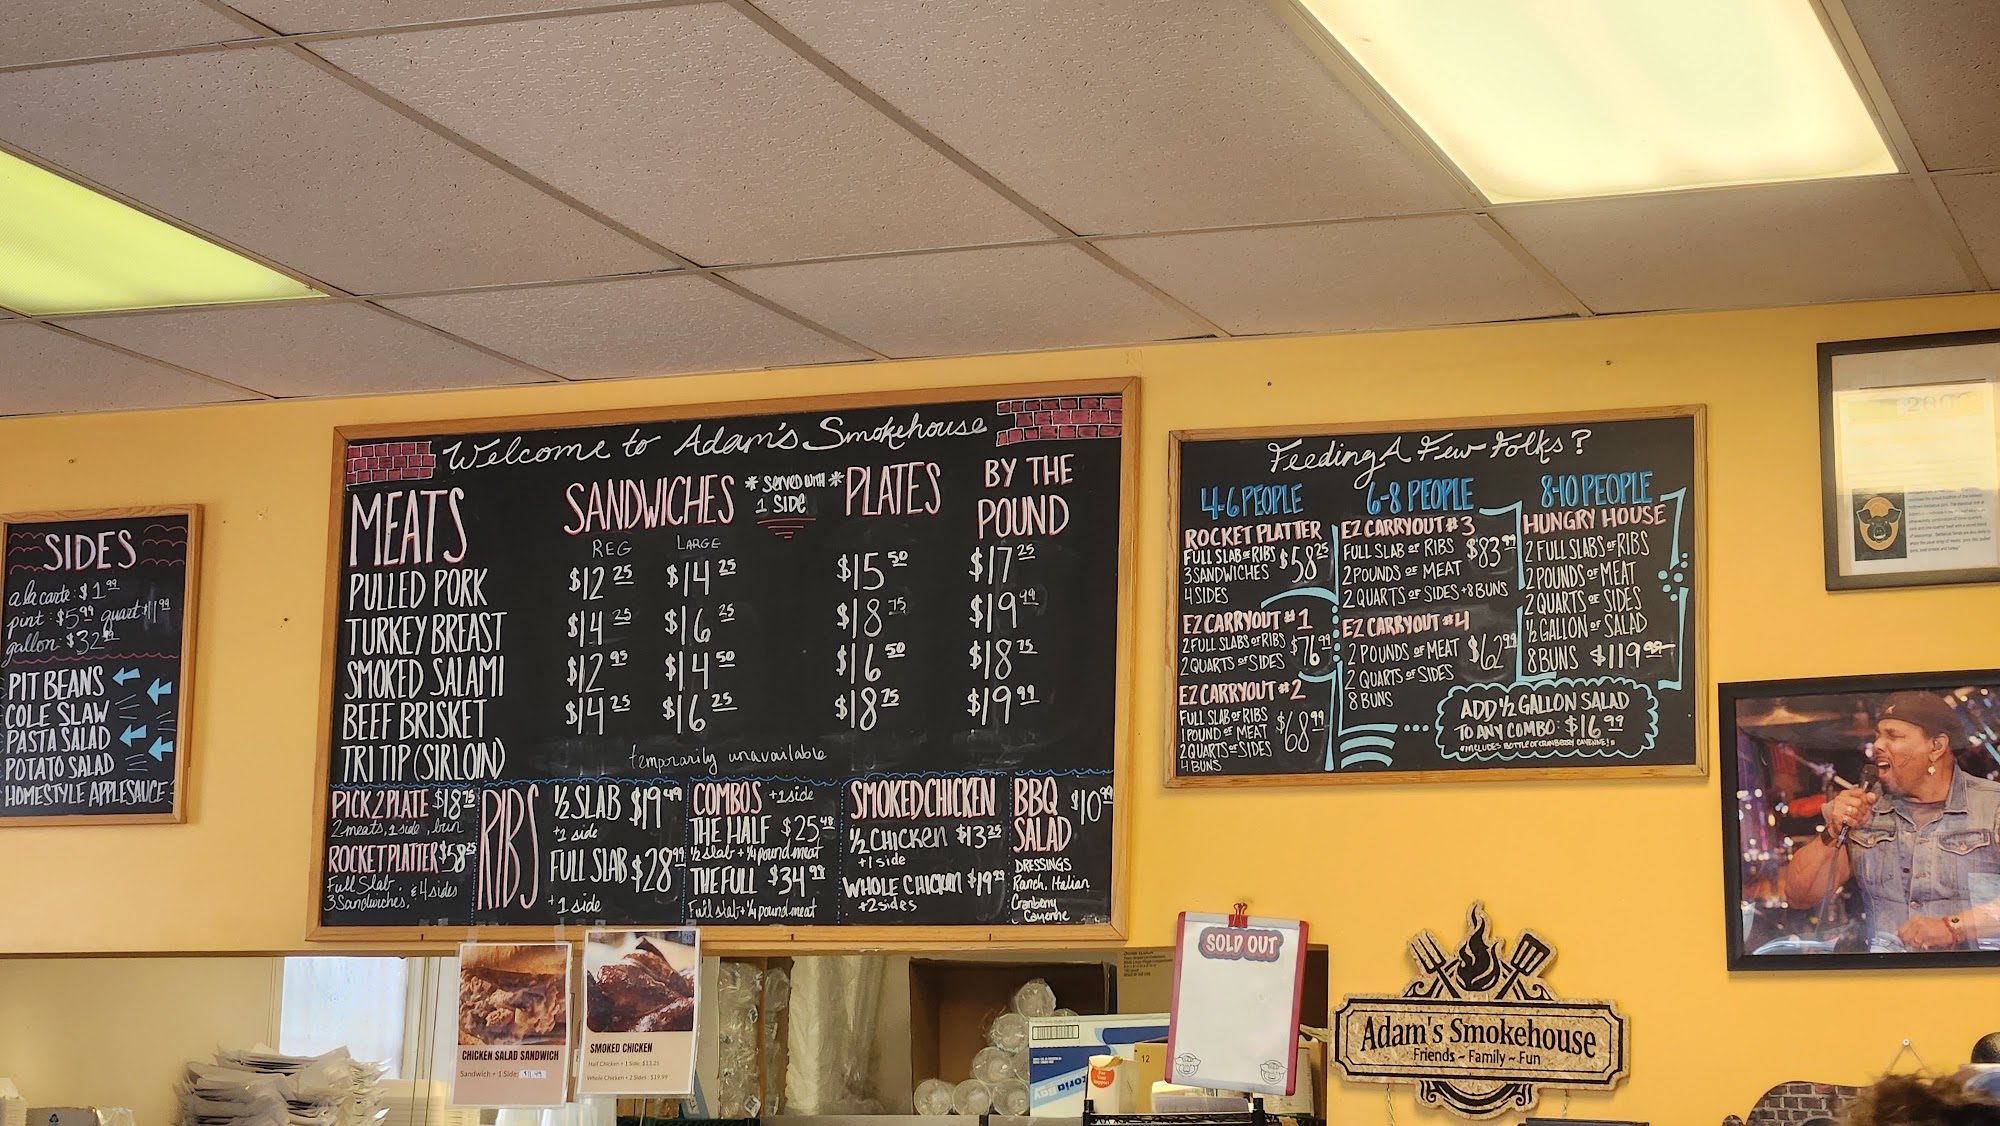 SIDES
a la carte: $1.99
pint: $5.99 quart $11.99
gallon: $32.99
PIT BEANS
COLE SLAW
PASTA SALAD
POTATO SALAD
HOMESTYLE APPLESAUCE
Welcome to Adam's Smokehouse
MEATS SANDWICHES * SERVED WITH 1 SIDE * PLATES BY THE POUND
REG LARGE
PULLED PORK $12.25 $14.25 $15.50 $17.25
TURKEY BREAST $14.25 $16.25 $18.75 $19.99
SMOKED SALAMI $12.95 $14.50 $16.50 $18.75
BEEF BRISKET $14.25 $16.25 $18.75 $19.99
TRI TIP (SIRLOIN) temporarily unavailable
PICK 2 PLATE $18.75
2 meats, 1 side, bun
ROCKET PLATTER $58.25
Full Slab
3 Sandwiches, & 4 sides
RIBS
½ SLAB $19.49
+1 side
FULL SLAB $28.99
+1 side
COMBOS +1 side
THE HALF $25.48
½ slab + ¼ pound meat
THE FULL $34.98
Full slab + ¼ pound meat
SMOKED CHICKEN
½ CHICKEN $13.25
+1 side
WHOLE CHICKEN $19.99
+2 sides
BBQ SALAD $10.99
DRESSINGS
Ranch, Italian
Cranberry
Cayenne
Feeding A Few Folks?
4-6 PEOPLE
ROCKET PLATTER
FULL SLAB OF RIBS
3 SANDWICHES $58.25
4 SIDES
EZ CARRYOUT #1
2 FULL SLABS OF RIBS $76.99
2 QUARTS OF SIDES
EZ CARRYOUT #2
FULL SLAB OF RIBS
1 POUND OF MEAT $68.99
2 QUARTS OF SIDES
4 BUNS
6-8 PEOPLE
EZ CARRYOUT #3
FULL SLAB OF RIBS $83.99
2 POUNDS OF MEAT
2 QUARTS OF SIDES + 8 BUNS
EZ CARRYOUT #4
2 POUNDS OF MEAT $62.99
2 QUARTS OF SIDES
8 BUNS
8-10 PEOPLE
HUNGRY HOUSE
2 FULL SLABS OF RIBS
2 POUNDS OF MEAT
2 QUARTS OF SIDES
½ GALLON OF SALAD
8 BUNS $119.99
ADD ½ GALLON SALAD
TO ANY COMBO: $16.99
*INCLUDES BOTTLE OF CRANBERRY CAYENNE!*
CHICKEN SALAD SANDWICH
Sandwich + 1 Side:
SMOKED CHICKEN
Half Chicken + 1 Side: $13.25
Whole Chicken + 2 Sides - $19.99
SOLD OUT
12
Adam's Smokehouse
Friends ~ Family ~ Fun